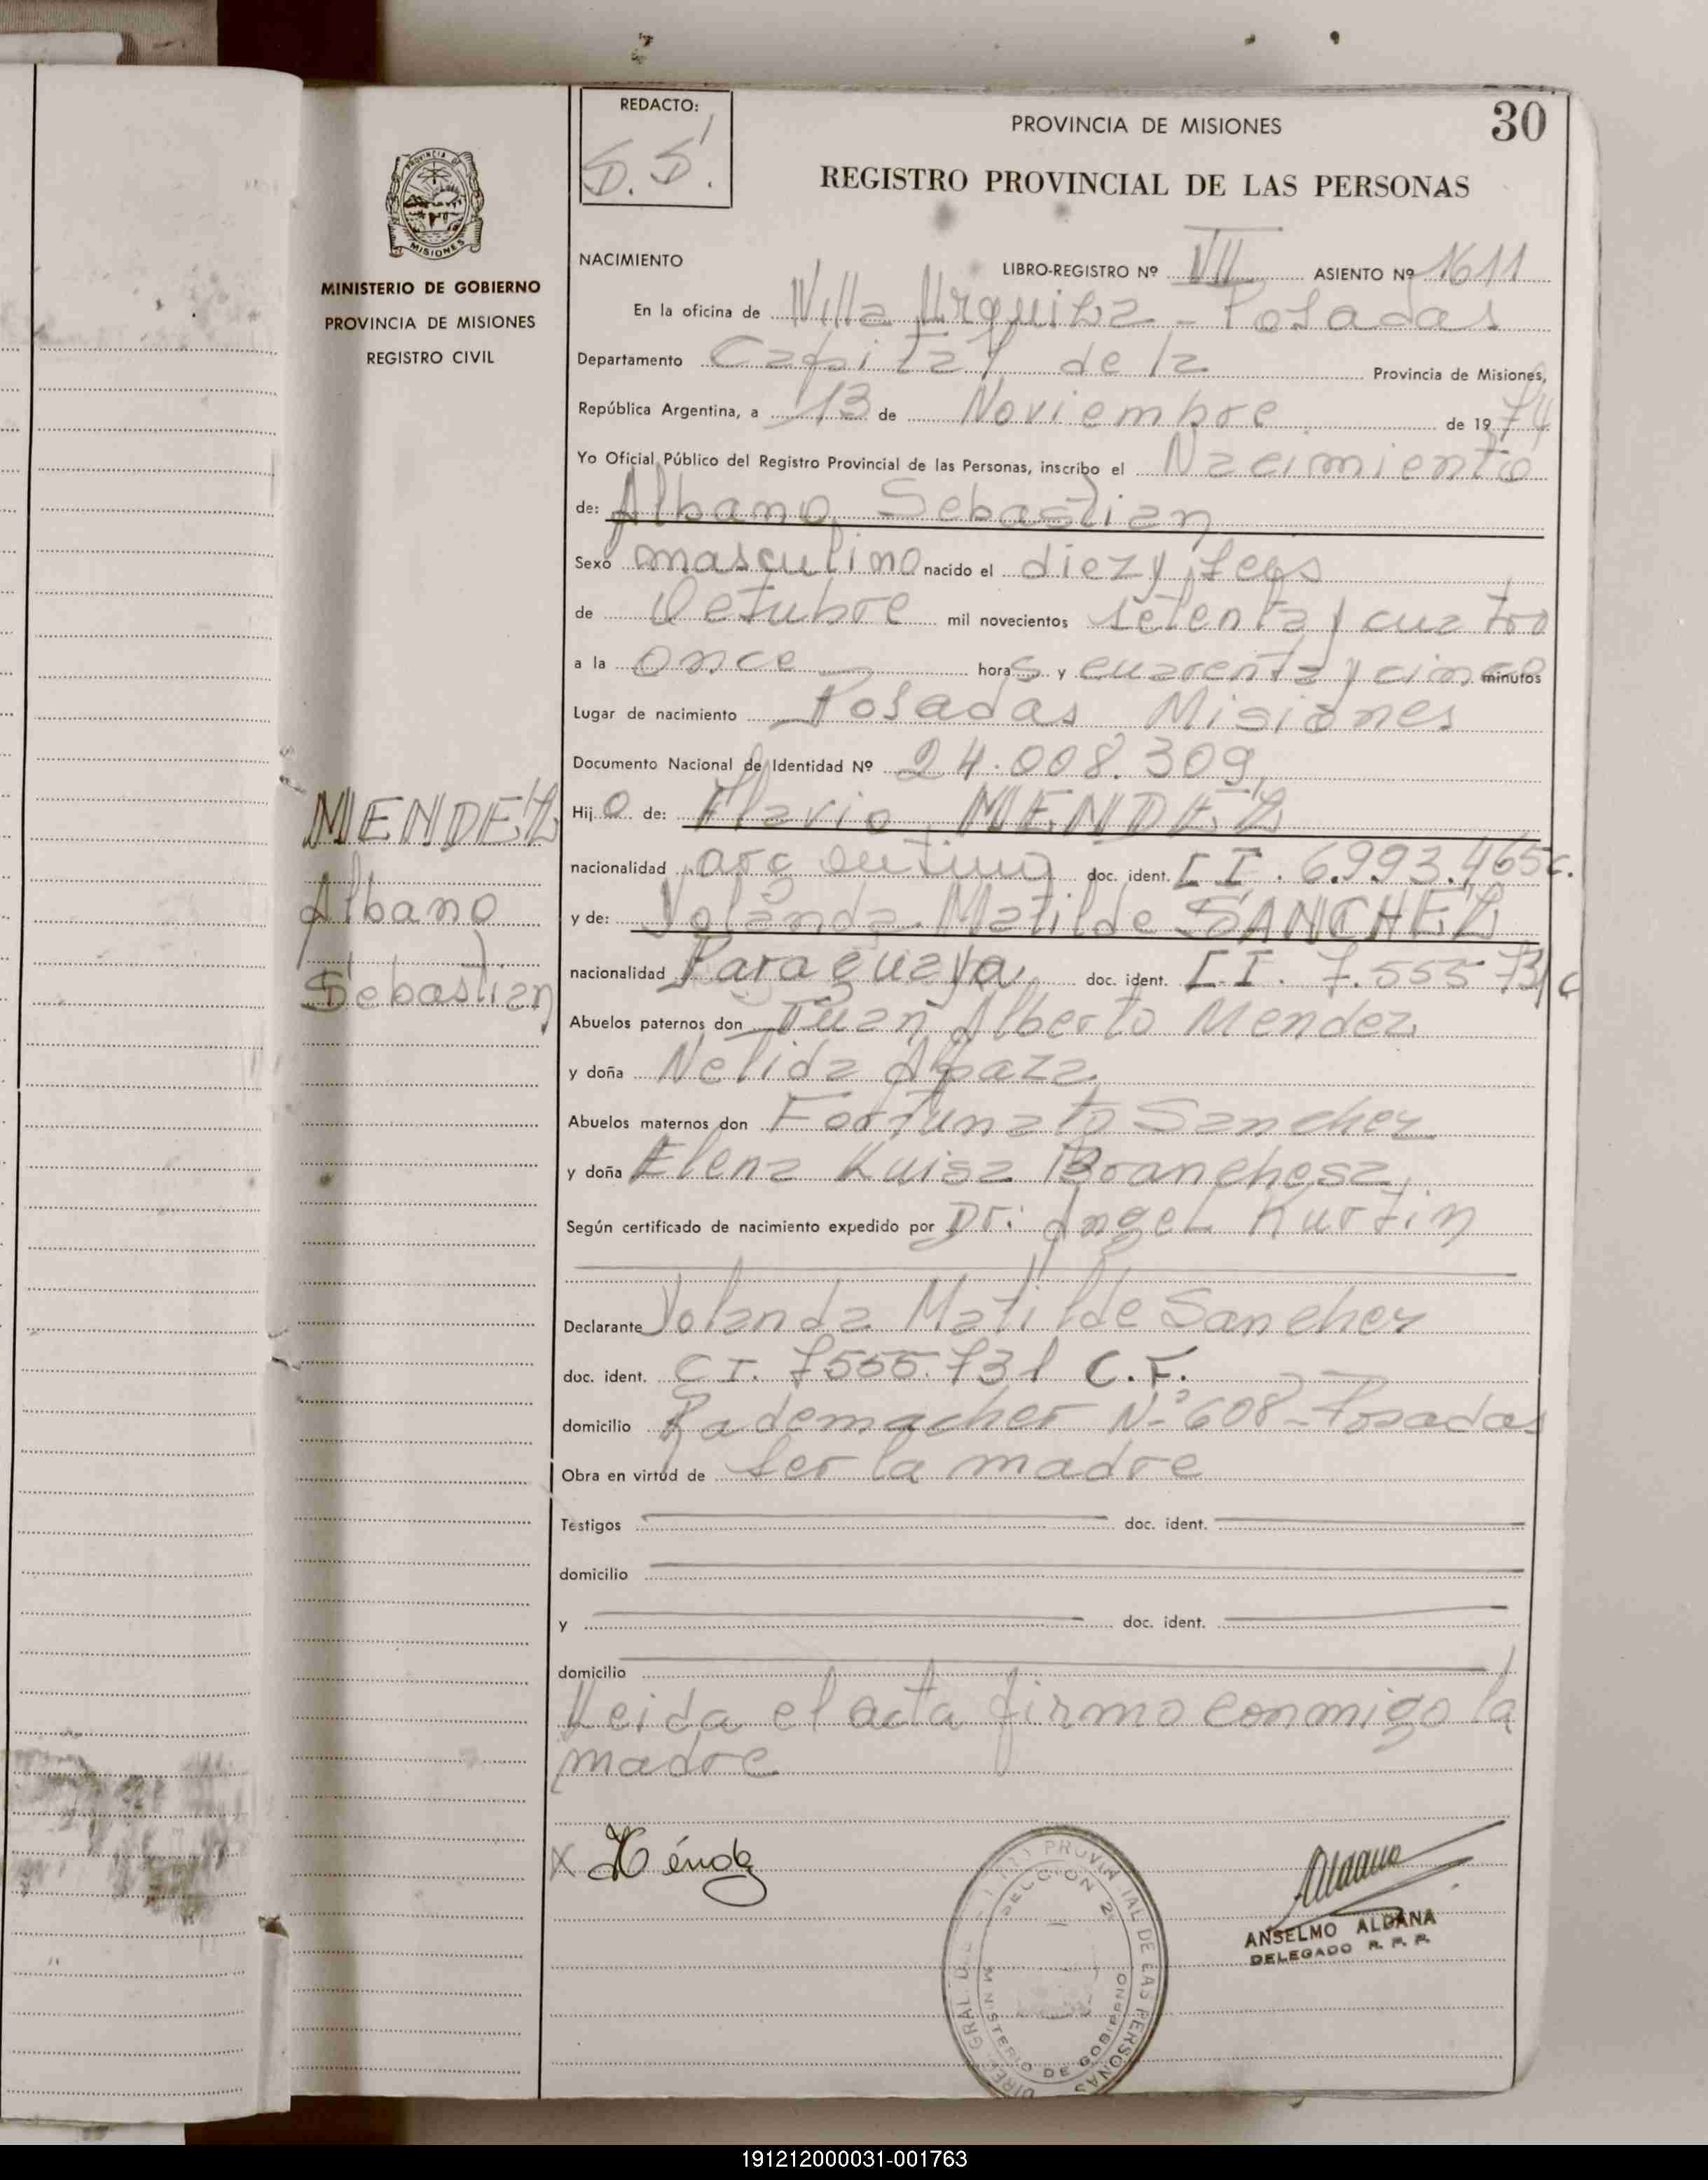 REDACTO:
S.S.
PROVINCIA DE MISIONES
30
REGISTRO PROVINCIAL DE LAS PERSONAS
PROVINCIA DE
MISIONES
MINISTERIO DE GOBIERNO
PROVINCIA DE MISIONES
REGISTRO CIVIL
NACIMIENTO LIBRO-REGISTRO Nº VII ASIENTO Nº 1611
En la oficina de Villa Urquiza - Posadas
Departamento Capital de la Provincia de Misiones,
República Argentina, a 13 de Noviembre de 1974
Yo Oficial Público del Registro Provincial de las Personas, inscribo el Nacimiento
de: Albano Sebastian
Sexo masculino nacido el diez y seis
de Octubre mil novecientos setenta y cuatro
a la once horas y cuarenta y cinco minutos
Lugar de nacimiento Posadas Misiones
Documento Nacional de Identidad Nº 24.008.309
MENDEZ
Albano
Sebastian
Hijo de: Flavio MENDEZ
nacionalidad argentino doc. ident. C I. 6.993.465 c.
y de: Yolanda Matilde SANCHEZ
nacionalidad Paraguaya doc. ident. C.I. 7.555 731 c
Abuelos paternos don Juan Alberto Mendez
y doña Nelida
Abuelos maternos don Fortunato Sanchez
y doña Elena Luisa Branchesa
Según certificado de nacimiento expedido por Dr: Angel Kurtin
Declarante Yolanda Matilde Sanchez
doc. ident. C I. 7555.731 C.F.
domicilio Rademacher Nº 608 - Posadas
Obra en virtud de ser la madre
Testigos doc. ident.
domicilio
y doc. ident.
domicilio
Leida el acta firmo conmigo la
madre
X Méndez
Aldana
ANSELMO ALDANA
DELEGADO R. P. P.
SECCION 2ª
MINISTERIO DE GOBIERNO
191212000031-001763